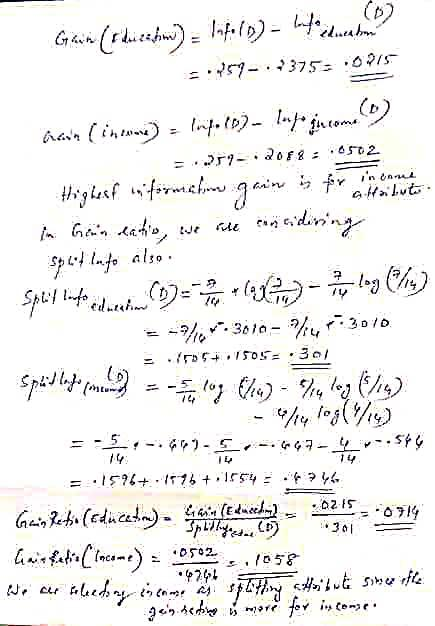 Gain (Education) = Info(D) - Info education (D)
= .259 - .2375 = .0215
Gain (income) = Info(D) - Info income (D)
= .259 - .2088 = .0502
Highest information gain is for income attribute.
In Gain ratio, we are considering
split Info also.
Split Info education (D) = -7/14 * log(7/14) - 7/14 log (7/14)
= -7/14 * -.3010 - 7/14 * -.3010
= .1505 + .1505 = .301
Split Info (income) (D) = -5/14 log (5/14) - 5/14 log (5/14)
- 4/14 log (4/14)
= -5/14 * -.447 - 5/14 * -.447 - 4/14 * -.544
= .1596 + .1596 + .1554 = .4746
Gain Ratio (Education) = Gain (Education) / Split Info edu (D) = .0215 / .301 = .0714
Gain Ratio (Income) = .0502 / .4746 = .1058
We are selecting income as splitting attribute since the
gain is more for income.